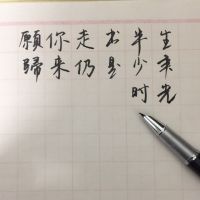 願你走出半生
歸来仍是少年
时光